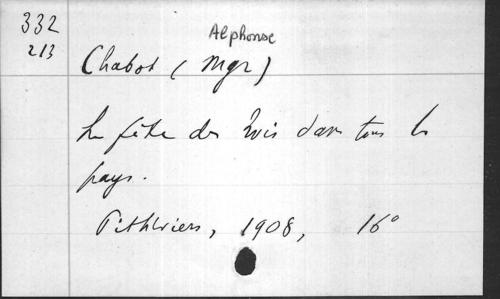 332
213
Alphonse
Chabot (Mgr)
La fête des Rois dans tous les
pays.
Pithiviers, 1908, 16°